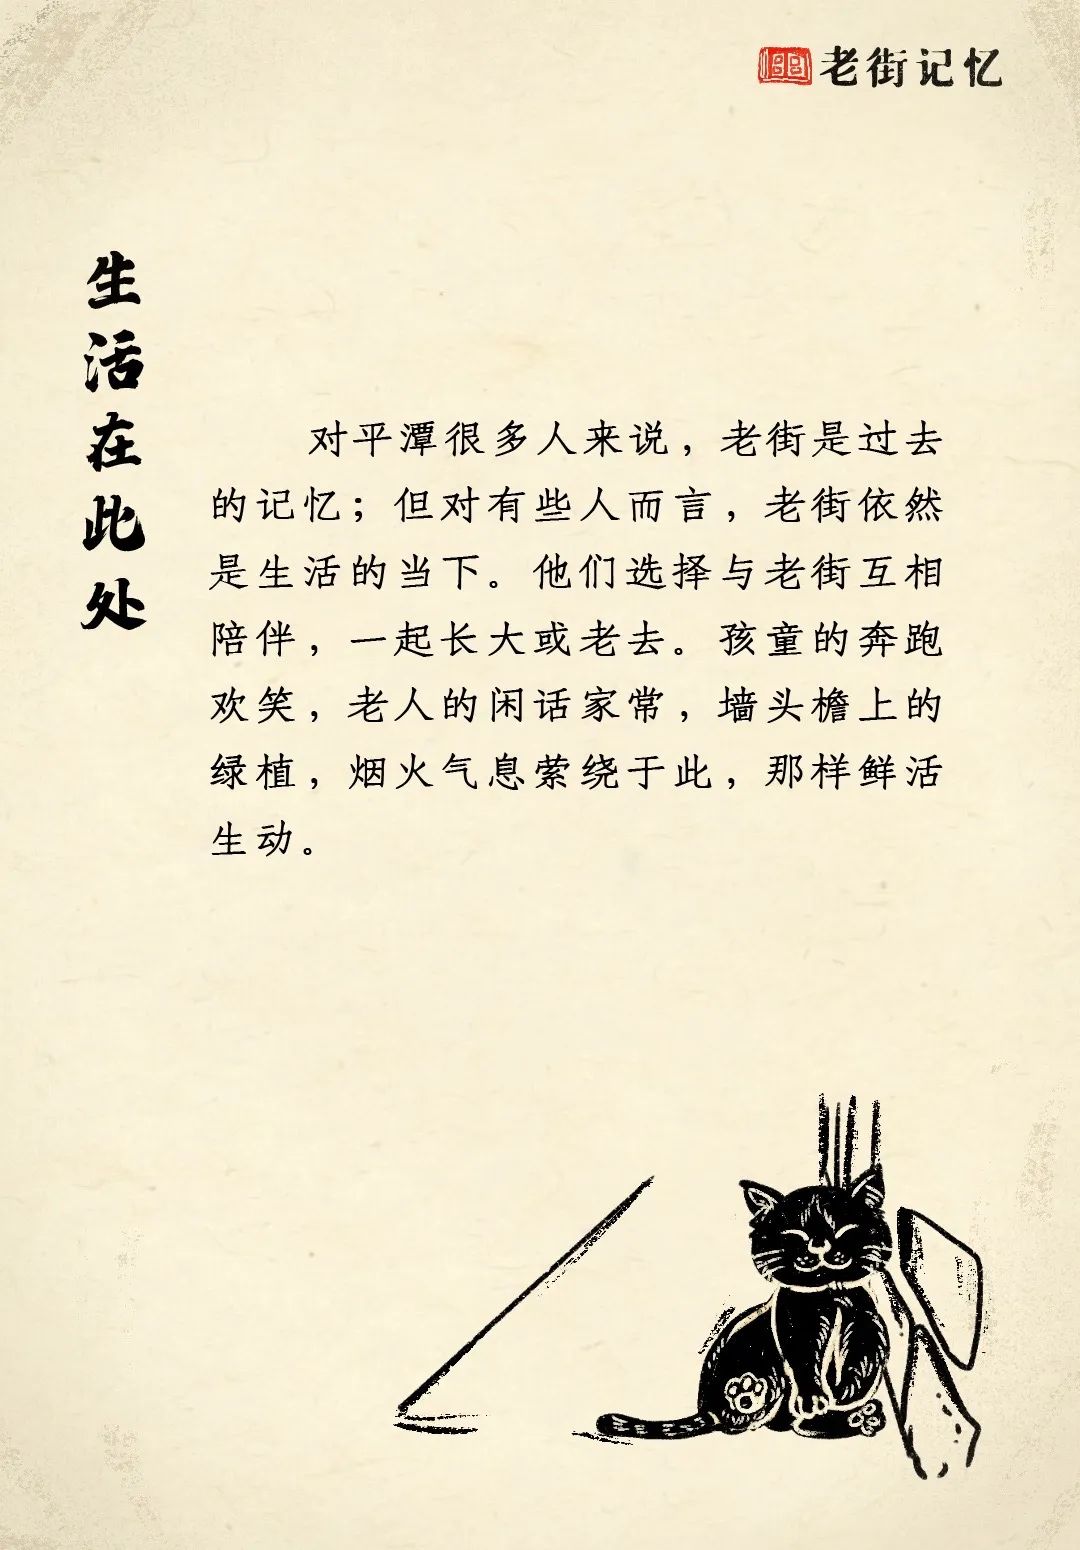 老街记忆
生活在此处
对平潭很多人来说，老街是过去
的记忆；但对有些人而言，老街依然
是生活的当下。他们选择与老街互相
陪伴，一起长大或老去。孩童的奔跑
欢笑，老人的闲话家常，墙头檐上的
绿植，烟火气息萦绕于此，那样鲜活
生动。